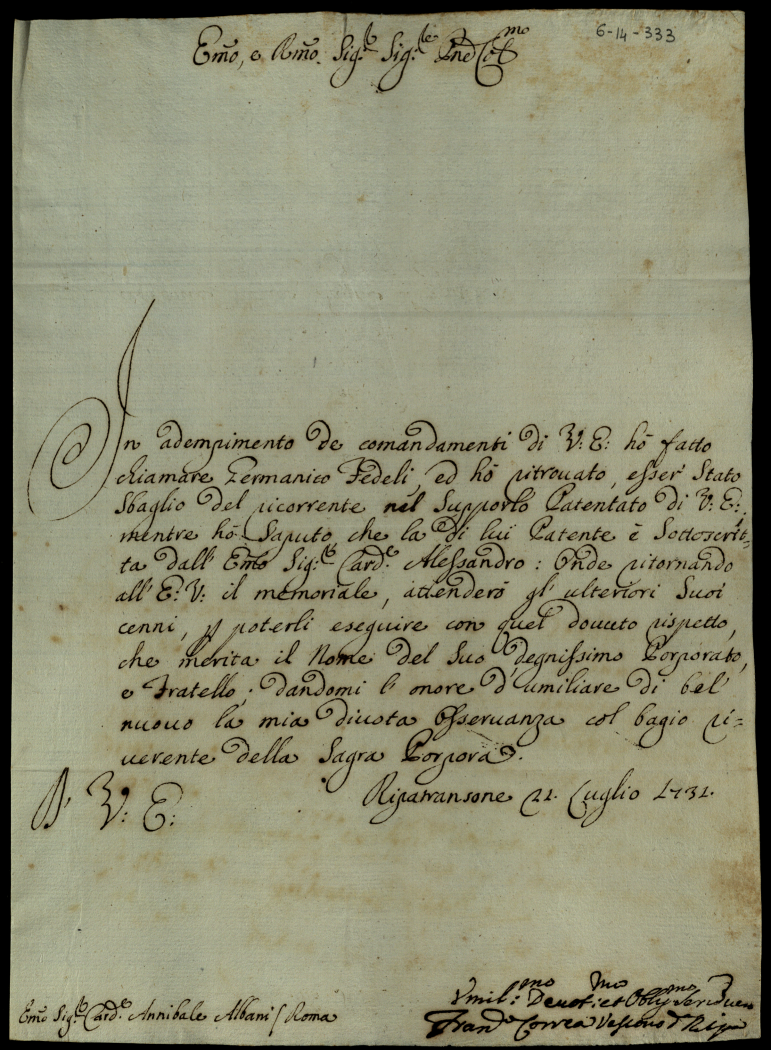 6-14-333
Em̃o, e Rm̃o. Sig.re Sig.re Pñe Col.mo
In adempimento de comandamenti di V: E: hò fatto
chiamare Zermanico Fedeli, ed hò ritrovato, esser Stato
Sbaglio del ricorrente nel Supporlo Patentato di V: E:,
mentre hò Saputo, che la di lui Patente è Sottoscrit=
ta dall' Em̃o Sig.re Card.e Alessandro: Onde ritornando
all' E: V: il memoriale, attenderò gl' ulteriori Suoi
cenni, p poterli eseguire con quel douuto rispetto,
che merita il Nome del Suo degnissimo Porporato,
e Fratello; dandomi l' onore d' umiliare di bel
nuouo la mia diuota Osseruanza col bagio ri=
uerente della Sagra Porpora.
D' V: E:
Ripatransone 21. Luglio 1731.
Vmil:mo Deuot:mo et Obl:mo Ser
Fran.co Correa Vescouo d Ripa
Em̃o Sig.re Card.e Annibale Albani / Roma